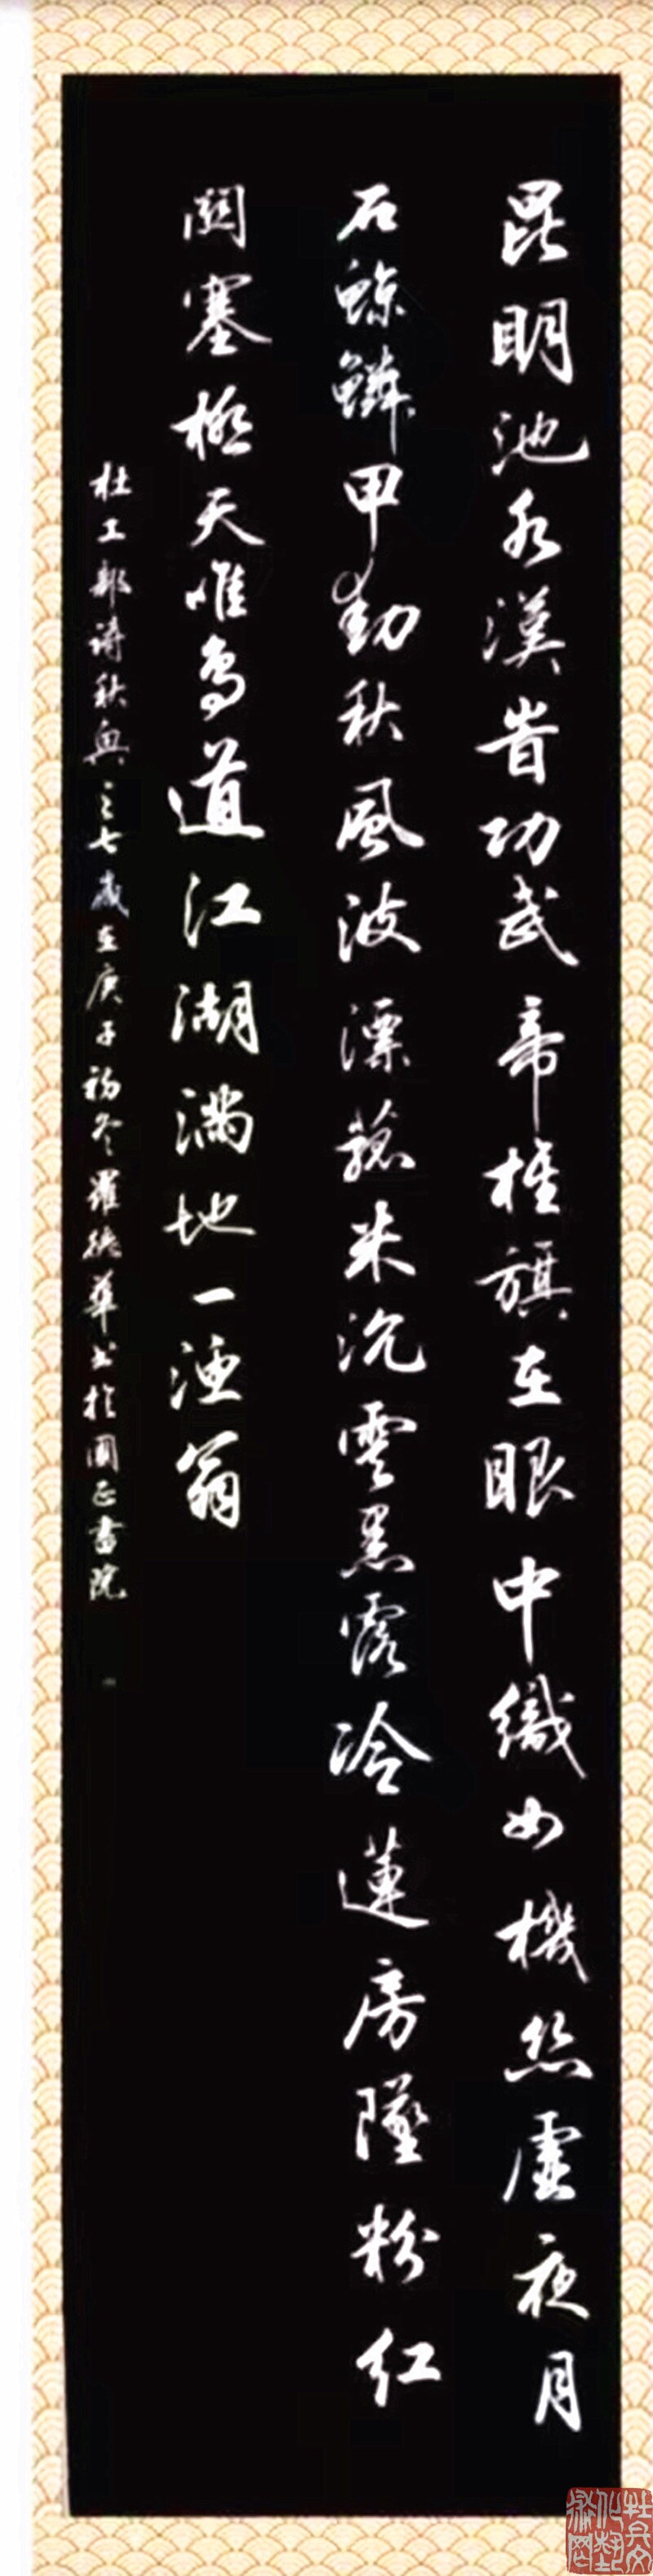 昆明池水漢旹功武帝旌旗在眼中織女機絲虛夜月
石鯨鱗甲動秋風波漂菰米沉雲黑露冷蓮房墜粉紅
關塞極天唯鳥道江湖滿地一漁翁
杜工部詩秋興之七歲在庚子初冬羅德華書於圓正書院